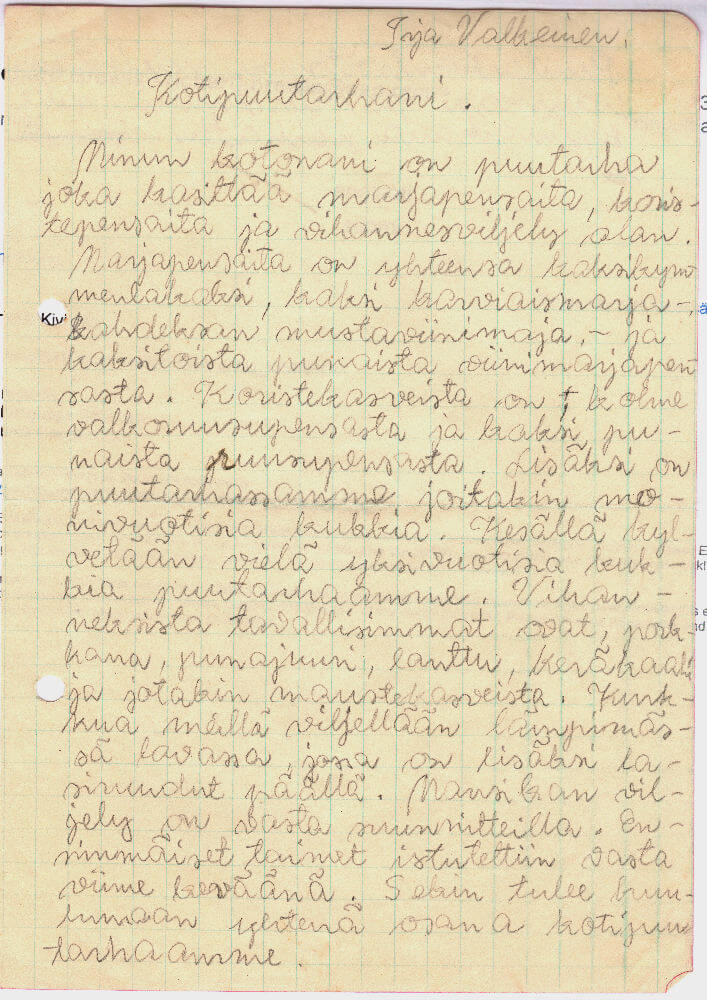 Irja Valkeinen.
Kotipuutarhani.
Minun kotonani on puutarha
joka käsittää marjapensaita, koris-
tepensaita ja vihannesviljely alan.
Marjapensaita on yhteensä kaksikym
mentäkaksi, kaksi karviaismarja-,
kahdeksan mustaviinimaja,- ja
kaksitoista punaista viinimarjapen
sasta. Koristekasveista on kolme
valkoruusupensasta ja kaksi pu-
naista ruusupensasta. Lisäksi on
puutarhassamme joitakin mo-
nivuotisia kukkia. Kesällä kyl-
vetään vielä yksivuotisia kuk-
kia puutarhaamme. Vihan-
neksista tavallisimmat ovat, pork-
kana, punajuuri, lanttu, keräkaali
ja jotakin maustekasveista. Kurk-
kua meillä viljellään lämpimäs-
sä lavassa, josa on lisäksi la-
siruudut päällä. Mansikan vil-
jely on vasta suunnitteilla. En-
simmäiset taimet istutettiin vasta
viime keväänä. Sekin tulee kuu-
lumaan yhtenä osana kotipuu
tarhaamme.
Kivi